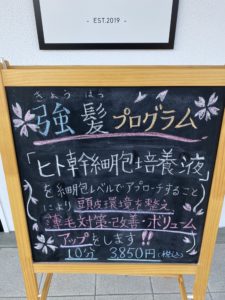 - EST.2019 -
きょう はつ
強髪プログラム
「ヒト幹細胞培養液」
を細胞レベルでアプローチすること
により頭皮環境を整え
薄毛対策・改善・ボリューム
アップをします!!
10分 3850円(税込)